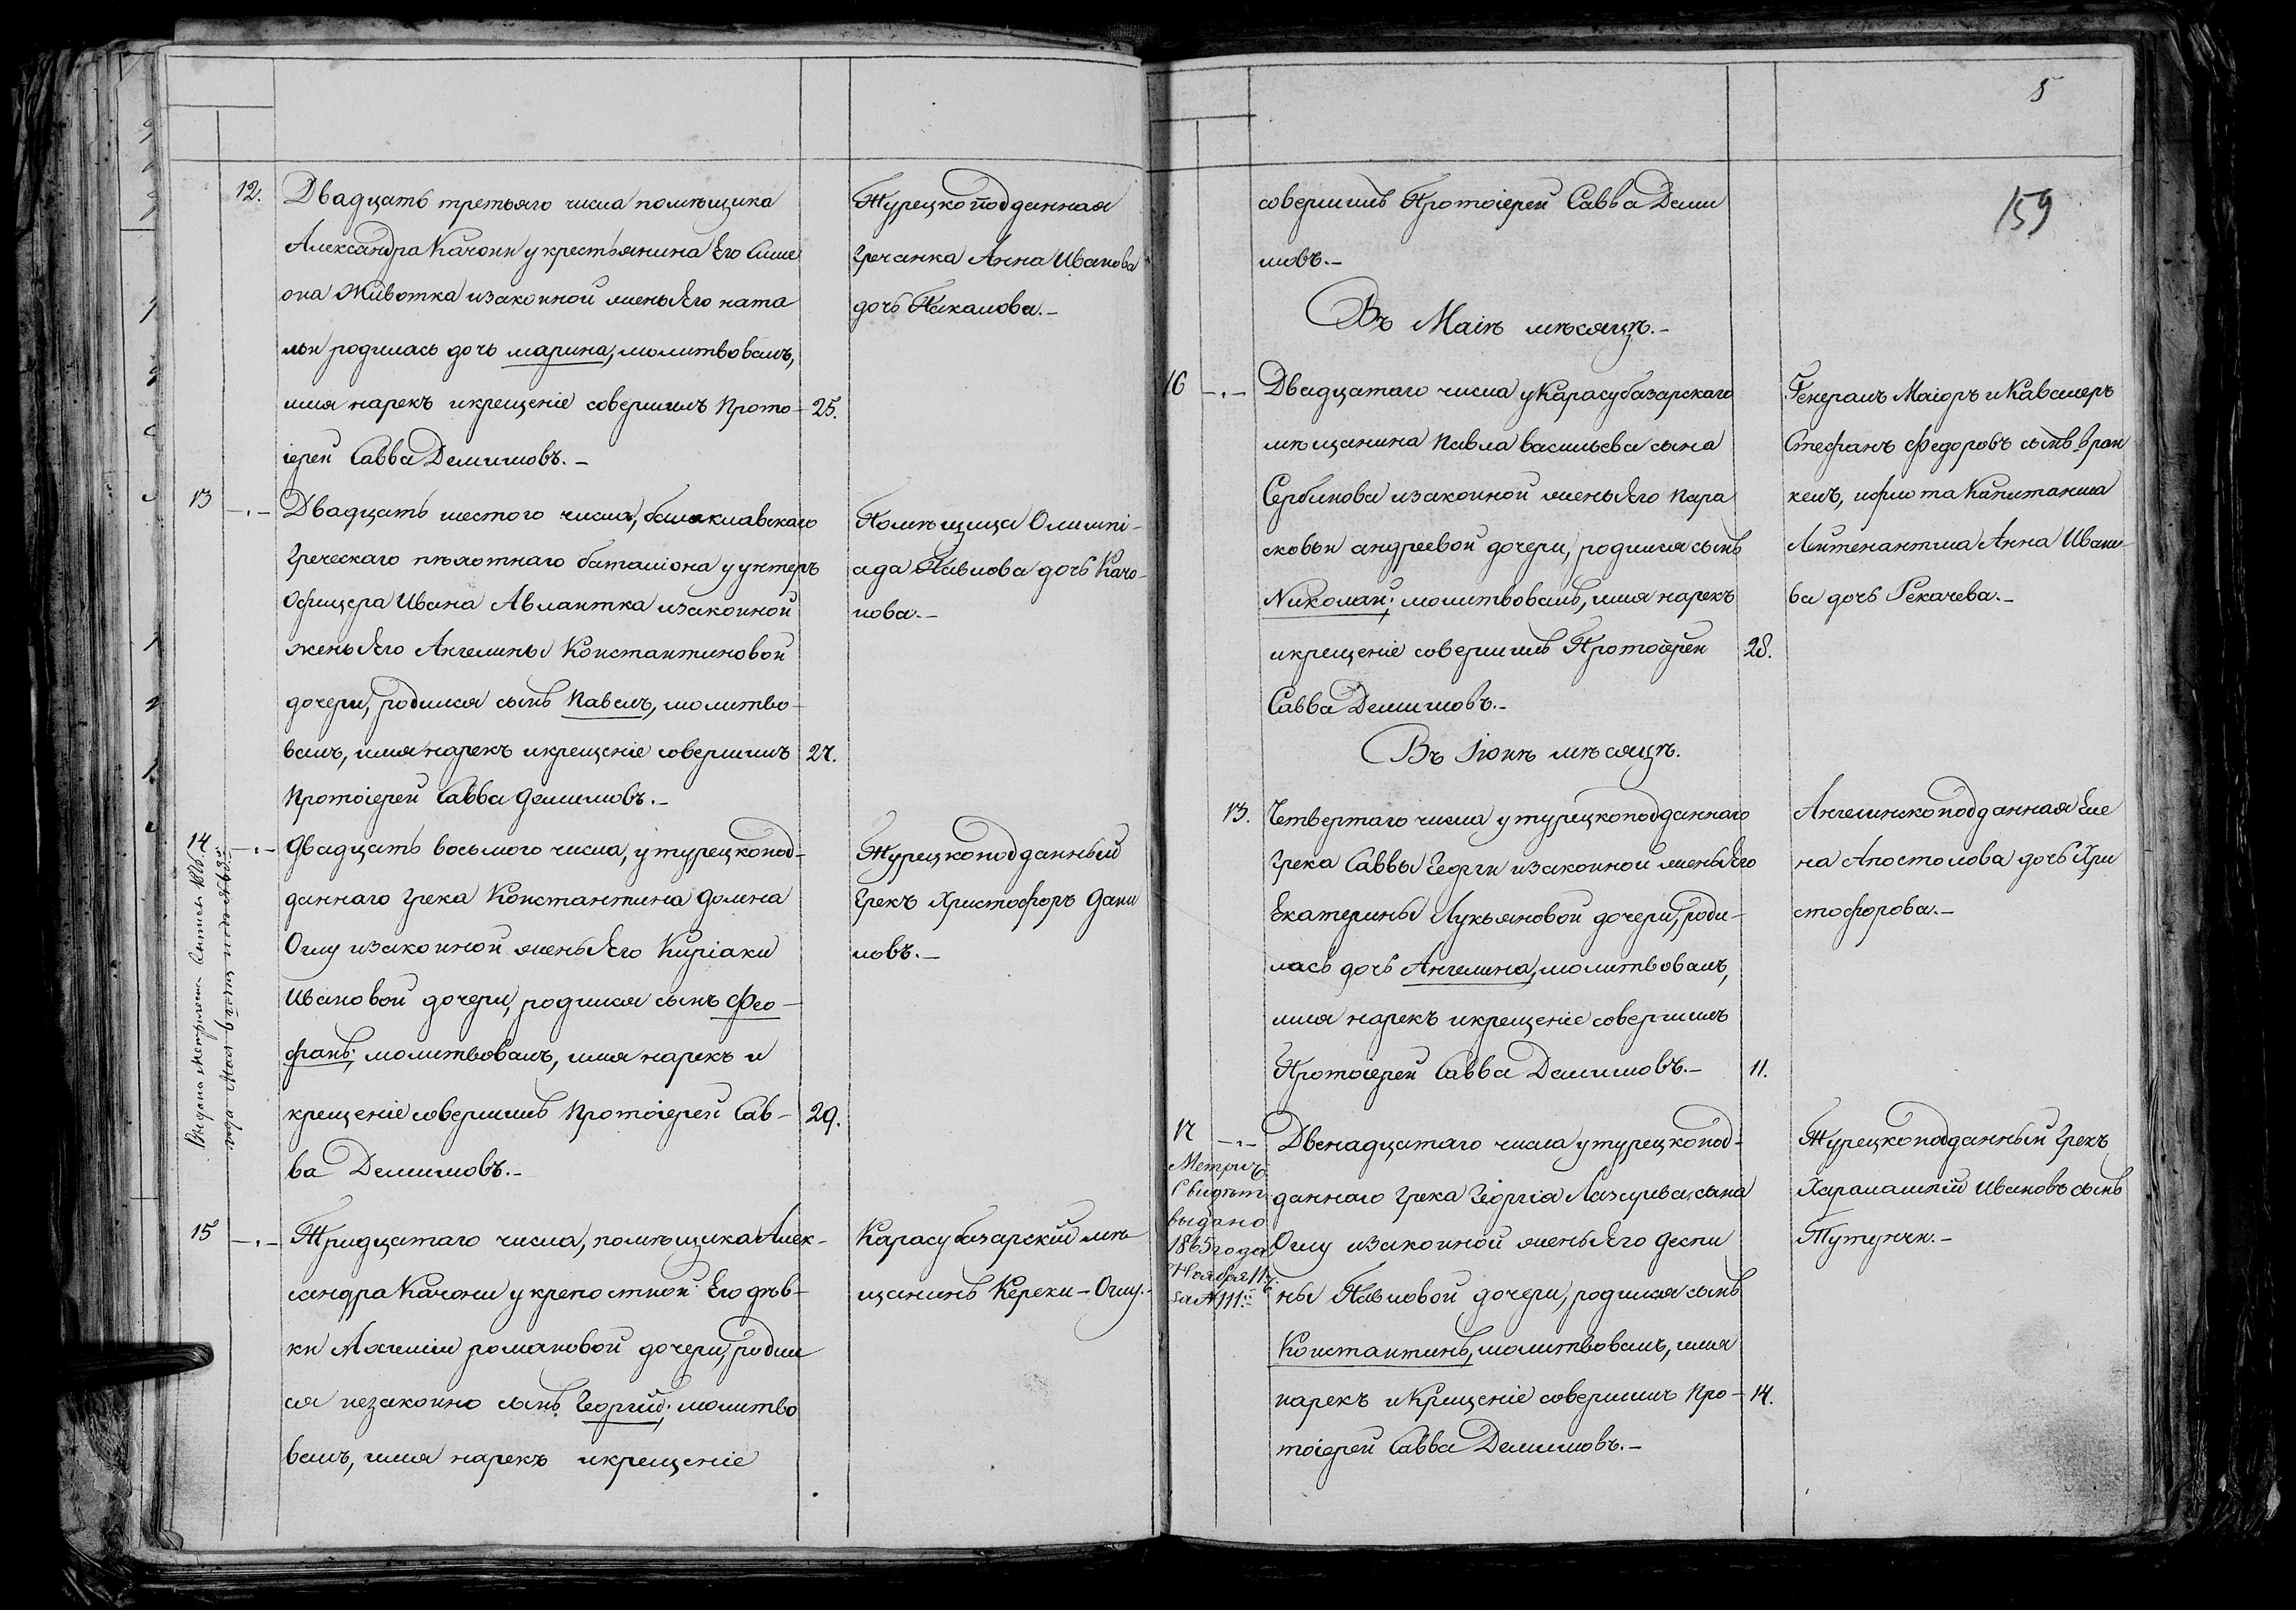 12. Двадцать третьяго числа помѣщика
Александра Качони у крестьянина Его Симе
она Животка изаконной жены Его ната
льи родилась дочь марина, молитвовалъ,
имя нарекъ икрещеніе совершилъ Прото- 25.
іерей Савва Демишовъ.-
Турецкоподданная
Гречанка Анна Иванова
дочь Пакалова.-
13 -.- Двадцать шестого числа, балаклавскаго
Греческаго пѣхотнаго баталіона у унтеръ
Офицера Ивана Авлантка изаконной
жены Его Ангелины Константиновой
дочери, родился сынъ Павелъ, молитво-
валъ, имя нарекъ икрещеніе совершилъ 27.
Протоіерей Савва Демишовъ.-
Помѣщица Олимпі-
ада Павлова дочь Качо-
нова.-
14 -.- Двадцать восьмого числа, у турецкопод-
даннаго Грека Константина Долена
Оглу изаконной жены Его Киріаки
Ивановой дочери, родился сынъ Фео-
фанъ; молитвовалъ, имя нарекъ и
крещеніе совершилъ Протоіерей Сав- 29.
ва Демишовъ.-
Турецкоподданный
Грекъ Христофоръ Дани
ловъ.-
15 -.- Тридцатаго числа, помѣщика Алек-
сандра Качони у крепостной Его дѣв-
ки Ахсиміи романовой дочери, родил
ся незаконно сынъ Георгій; молитво
валъ, имя нарекъ икрещеніе
Карасубазарскій мѣ
щанинъ Кереки-Оглу.-
5
159
совершилъ Протоіерей Савва Деми
шовъ.-
Въ Маіѣ мѣсяцѣ.-
16 -.- Двадцатаго числа у Карасубазарскаго
мѣщанина Павла васильева сына
Сербинова изаконной жены Его Пара
сковьи андреевой дочери, родился сынъ
Николай; молитвовалъ, имя нарекъ
икрещеніе совершилъ Протоіерей 28.
Савва Демишовъ.-
Генералъ Маіоръ и Кавалеръ
Стефанъ Федоровъ сынъ Вран
кель, ифлота Капитанша
Лейтенантша Анна Ивано-
ва дочь Рекачева.-
Въ Іюнѣ мѣсяцѣ.
13. Четвертаго числа у турецкоподданнаго
Грека Саввы Георги изаконной жены Его
Екатерины Лукьяновой дочери, роди-
лась дочь Ангелина, молитвовалъ,
имя нарекъ икрещеніе совершилъ
Протоіерей Савва Демишовъ.- 11.
Ангелинскоподданная Еле
на Апостолова дочь Хри
стофорова.-
17 -.- Двенадцатаго числа у турецкопод-
даннаго Грека Георгія Лазарева сына
Оглу изаконной жены Его Деспи
ны Павловой дочери, родился сынъ
Константинъ, молитвовалъ, имя
нарекъ и Крещеніе совершилъ Про- 14.
тоіерей Савва Демишовъ.-
Метрич.
Свидѣт.
выдано
1865 года
Ноября 11
за № 111
Турецкоподданный Грекъ
Харалампій Ивановъ сынъ
Тутунчи.-